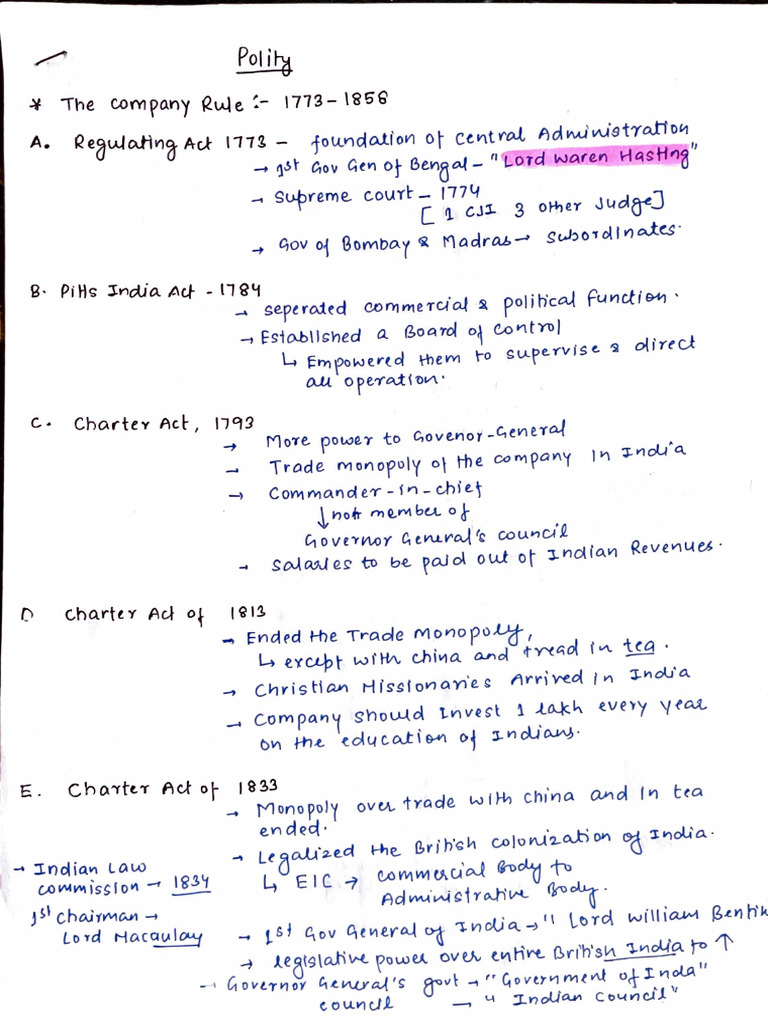 Polity
* The Company Rule :- 1773-1858
A. Regulating Act 1773 - foundation of Central Administration
→ 1st Gov Gen of Bengal - "Lord Waren Hasting"
→ Supreme court - 1774
[ 1 CJI 3 other Judge]
→ Gov of Bombay & Madras → subordinates.
B. Pitts India Act - 1784
→ seperated commercial & political function.
→ Established a Board of control
↳ Empowered them to supervise & direct
all operation.
C. Charter Act, 1793
→ More power to Govenor-General
→ Trade monopoly of the company in India
→ Commander-in-chief
↓ not member of
Governor General's council
→ Salaries to be paid out of Indian Revenues.
D Charter Act of 1813
→ Ended the Trade monopoly,
↳ except with china and tread in tea.
→ Christian Missionaries Arrived in India
→ Company should Invest 1 lakh every year
on the education of Indians.
E. Charter Act of 1833
→ Monopoly over trade with china and in tea
ended.
→ Legalized the British colonization of India.
↳ EIC → commercial Body to
Administrative Body.
→ Indian Law
commission → 1834
1st Chairman →
Lord Macaulay
→ 1st Gov General of India → " Lord william Bentik
→ legislative power over entire British India to ↑
→ Governor General's govt → "Government of Inda"
council → " Indian Council"